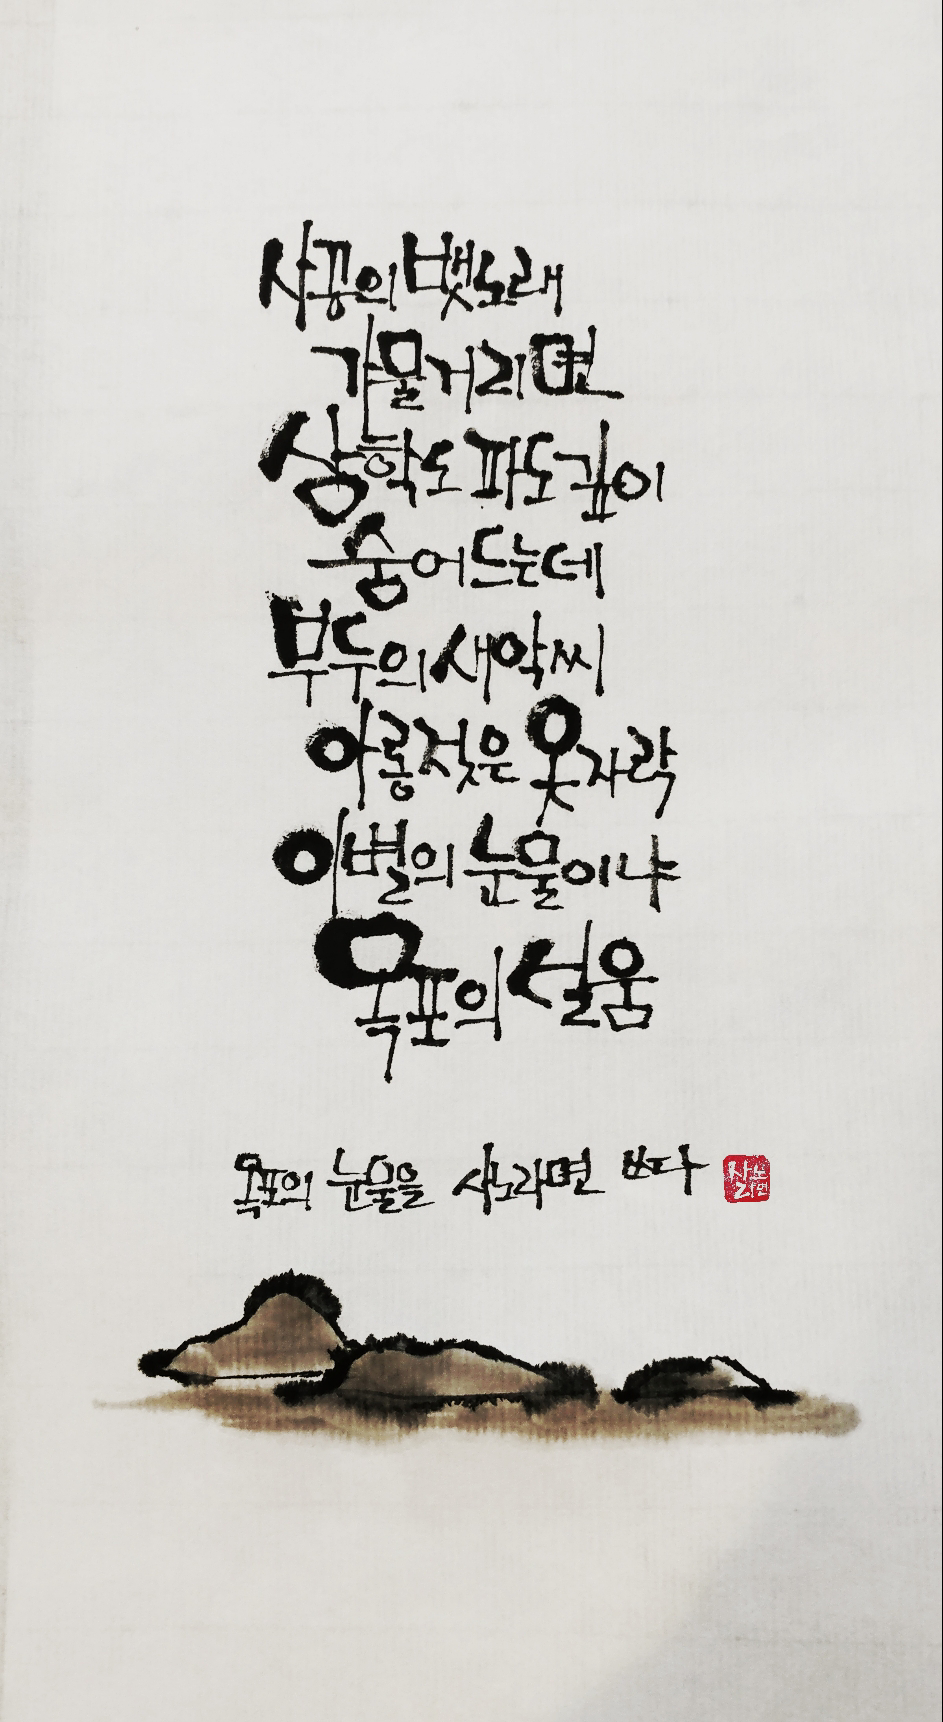 사공의 뱃노래
가물거리면
삼학도 파도 깊이
숨어드는데
부두의 새악씨
아롱젖은 옷자락
이별의 눈물이냐
목포의 설움
목포의 눈물을 사노라면 쓰다
사노
라면